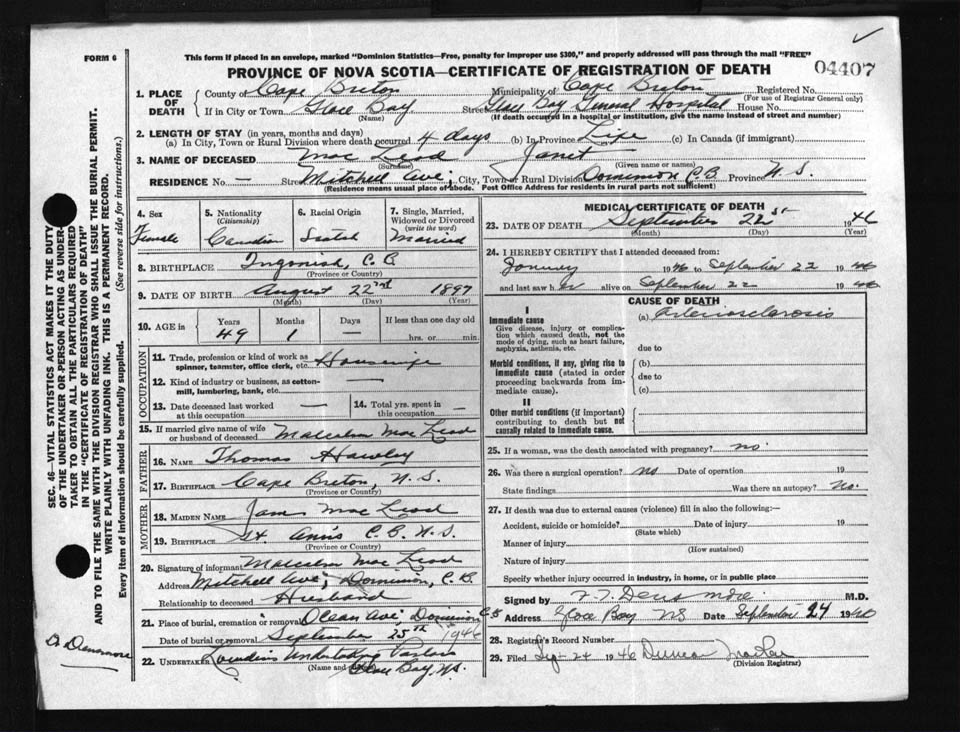 FORM 6
This form if placed in an envelope, marked "Dominion Statistics—Free, penalty for improper use $300," and properly addressed will pass through the mail "FREE"
PROVINCE OF NOVA SCOTIA—CERTIFICATE OF REGISTRATION OF DEATH
04407
SEC. 46—VITAL STATISTICS ACT MAKES IT THE DUTY
OF THE UNDERTAKER OR PERSON ACTING AS UNDER-
TAKER TO OBTAIN ALL THE PARTICULARS REQUIRED
IN THE "CERTIFICATE OF REGISTRATION OF DEATH"
AND TO FILE THE SAME WITH THE DIVISION REGISTRAR WHO SHALL ISSUE THE BURIAL PERMIT.
WRITE PLAINLY WITH UNFADING INK. THIS IS A PERMANENT RECORD.
Every item of information should be carefully supplied. (See reverse side for instructions.)
1. PLACE OF DEATH
County of Cape Breton Municipality of Cape Breton Registered No.
(For use of Registrar General only)
If in City or Town Glace Bay Street Glace Bay General Hospital House No.
(Name) (If death occurred in a hospital or institution, give the name instead of street and number)
2. LENGTH OF STAY (in years, months and days)
(a) In City, Town or Rural Division where death occurred 4 days (b) In Province Life (c) In Canada (if immigrant)
3. NAME OF DECEASED Mac Leod Janet
(Surname) (Given name or names)
RESIDENCE No. — Street Mitchell Ave; City, Town or Rural Division Dominion C.B. Province N.S.
(Residence means usual place of abode. Post Office Address for residents in rural parts not sufficient)
4. Sex
Female
5. Nationality
(Citizenship)
Canadian
6. Racial Origin
Scotch
7. Single, Married,
Widowed or Divorced
(write the word)
Married
8. BIRTHPLACE Ingonish, C.B.
(Province or Country)
9. DATE OF BIRTH August 22nd 1897
(Month) (Day) (Year)
10. AGE in
Years Months Days If less than one day old
49 1 — hrs. or min.
OCCUPATION
11. Trade, profession or kind of work as
spinner, teamster, office clerk, etc. Housewife
12. Kind of industry or business, as cotton-
mill, lumbering, bank, etc. —
13. Date deceased last worked
at this occupation —
14. Total yrs. spent in
this occupation —
15. If married give name of wife
or husband of deceased Malcolm Mac Leod
FATHER
16. NAME Thomas Hawley
17. BIRTHPLACE Cape Breton, N.S.
(Province or Country)
MOTHER
18. MAIDEN NAME Mac Leod
19. BIRTHPLACE St Ann's C.B. N.S.
(Province or Country)
20. Signature of informant Malcolm Mac Leod
Address Mitchell Ave; Dominion, C.B.
Relationship to deceased Husband
21. Place of burial, cremation or removal Ocean Ave; Dominion C.B.
Date of burial or removal September 25th 1946
22. UNDERTAKER Undertaking Parlors
(Name and Glace Bay, N.S.
MEDICAL CERTIFICATE OF DEATH
23. DATE OF DEATH September 22 1946
(Month) (Day) (Year)
24. I HEREBY CERTIFY that I attended deceased from:
January 1946 to September 22 1946
and last saw her alive on September 22 1946
CAUSE OF DEATH
I
Immediate cause
Give disease, injury or complica-
tion which caused death, not the
mode of dying, such as heart failure,
asphyxia, asthenia, etc.
(a) Arteriosclerosis
due to
Morbid conditions, if any, giving rise to
immediate cause (stated in order
proceeding backwards from im-
mediate cause).
(b)
due to
(c)
II
Other morbid conditions (if important)
contributing to death but not
causally related to immediate cause.
25. If a woman, was the death associated with pregnancy? no
26. Was there a surgical operation? no Date of operation 19
State findings Was there an autopsy? No.
27. If death was due to external causes (violence) fill in also the following:—
Accident, suicide or homicide? Date of injury 19
(State which)
Manner of injury
(How sustained)
Nature of injury
Specify whether injury occurred in industry, in home, or in public place
Signed by Densmore M.D.
Address Glace Bay NS Date September 24 1946
28. Registrar's Record Number
29. Filed Sep-24 1946 Duncan
(Division Registrar)
Densmore